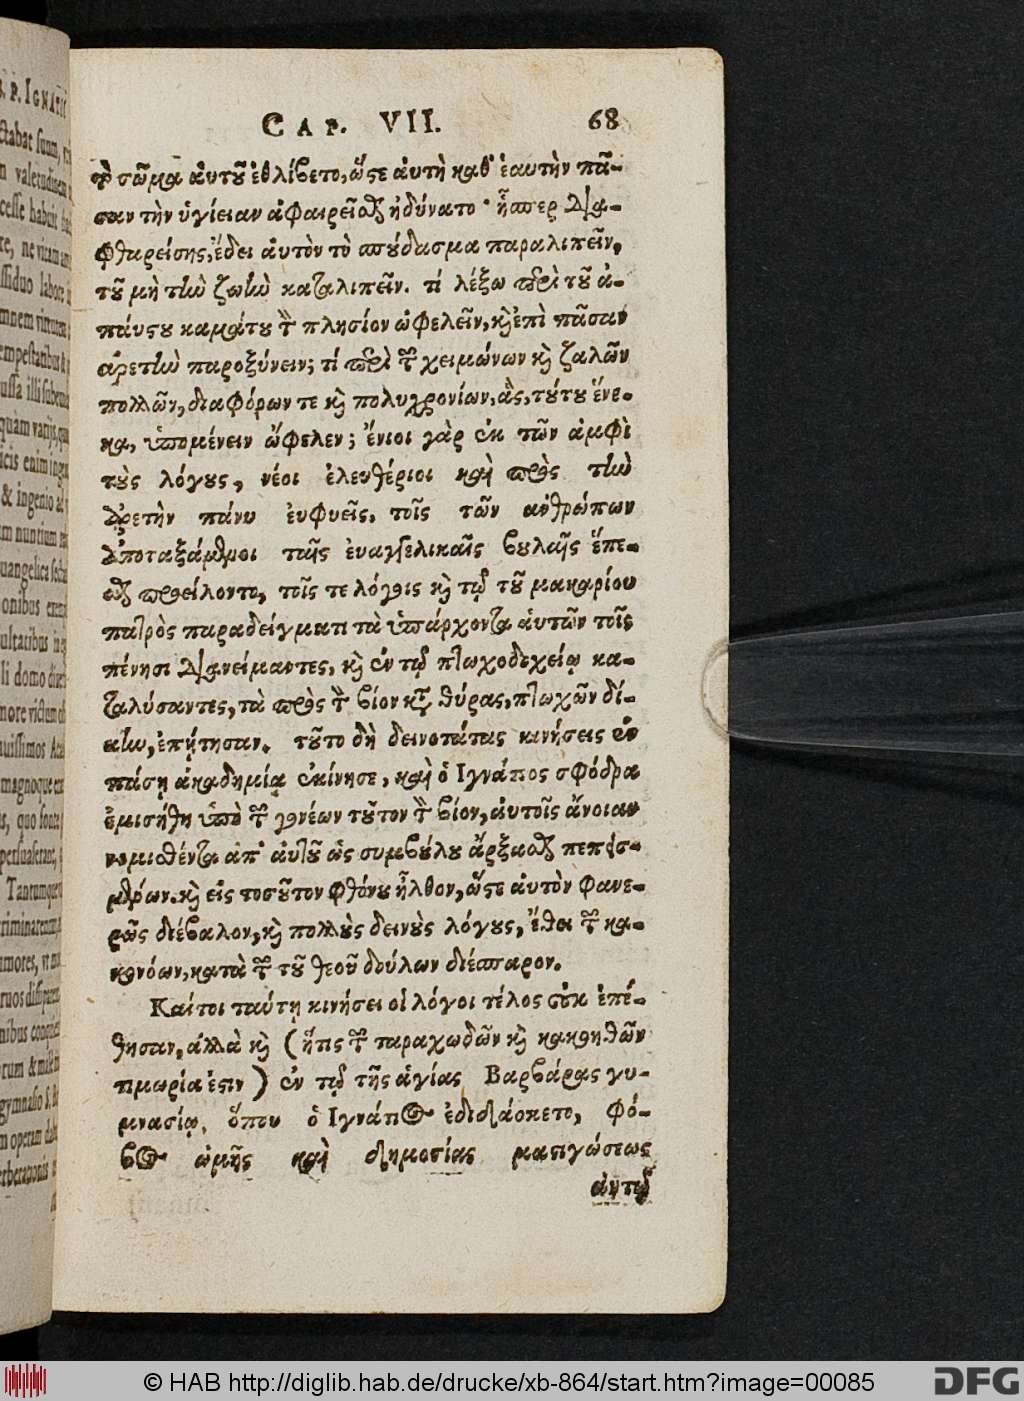 S. P. IGNATII
CAP. VII. 68
τὸ σῶμα αὐτοῦ ἐθλίβετο, ὥστε αὐτὴ καθ' ἑαυτὴν πᾶ-
σαν τὴν ὑγίειαν ἀφαιρεῖσθαι ἠδύνατο· ἧσπερ δια-
φθαρείσης, ἔδει αὐτὸν τὸ σπούδασμα παραλιπεῖν,
τοῦ μὴ τὴν ζωὴν καταλιπεῖν. τί λέξω περὶ τοῦ ἀ-
παύστου καμάτου τὸν πλησίον ὠφελεῖν, καὶ ἐπὶ πᾶσαν
ἀρετὴν παροξύνειν; τί περὶ τῶν χειμώνων καὶ ζαλῶν
πολλῶν, διαφόρων τε καὶ πολυχρονίων, ἃς, τούτου ἕνε-
κα, ὑπομένειν ὤφελεν; ἔνιοι γὰρ ἐκ τῶν ἀμφὶ
τοὺς λόγους, νέοι ἐλευθέριοι καὶ πρὸς τὴν
ἀρετὴν πάνυ εὐφυεῖς, τοῖς τῶν ἀνθρώπων
ἀποταξάμενοι ταῖς εὐαγγελικαῖς βουλαῖς ἕπε-
σθαι προείλοντο, τοῖς τε λόγοις καὶ τῷ τοῦ μακαρίου
πατρὸς παραδείγματι τὰ ὑπάρχοντα αὐτῶν τοῖς
πένησι διανείμαντες, καὶ ἐν τῷ πτωχοδοχείῳ κα-
ταλύσαντες, τὰ πρὸς τὸν βίον κατὰ θύρας, πτωχῶν δί-
κην, ἐπῄτησαν. τοῦτο δὴ δεινοτάτας κινήσεις ἐν
πάσῃ ἀκαδημίᾳ ἐκίνησε, καὶ ὁ Ἰγνάτιος σφόδρα
ἐμισήθη ὑπὸ τῶν γονέων τοῦτον τὸν βίον, αὐτοῖς ἄνοιαν
νομισθέντα ἀπ' αὐτοῦ ὡς συμβούλου ἄρξασθαι πεπεισ-
μένων. καὶ εἰς τοσοῦτον φθόνου ἦλθον, ὥστε αὐτὸν φανε-
ρῶς διέβαλον, καὶ πολλοὺς δεινοὺς λόγους, ἔθει τῶν κα-
κονόων, κατὰ τῶν τοῦ θεοῦ δούλων διέσπαρον.
Καίτοι ταύτῃ κινήσει οἱ λόγοι τέλος οὐκ ἐπέ-
θησαν, ἀλλὰ καὶ (ἥτις τῶν ταραχωδῶν καὶ κακοηθῶν
τιμωρία ἐστιν) ἐν τῷ τῆς ἁγίας Βαρβάρας γυ-
μνασίῳ, ὅπου ὁ Ἰγνάτιος ἐδιδάσκετο, φό-
βος ὠμῆς καὶ δημοσίας μαστιγώσεως
αὐτῷ
© HAB http://diglib.hab.de/drucke/xb-864/start.htm?image=00085
DFG